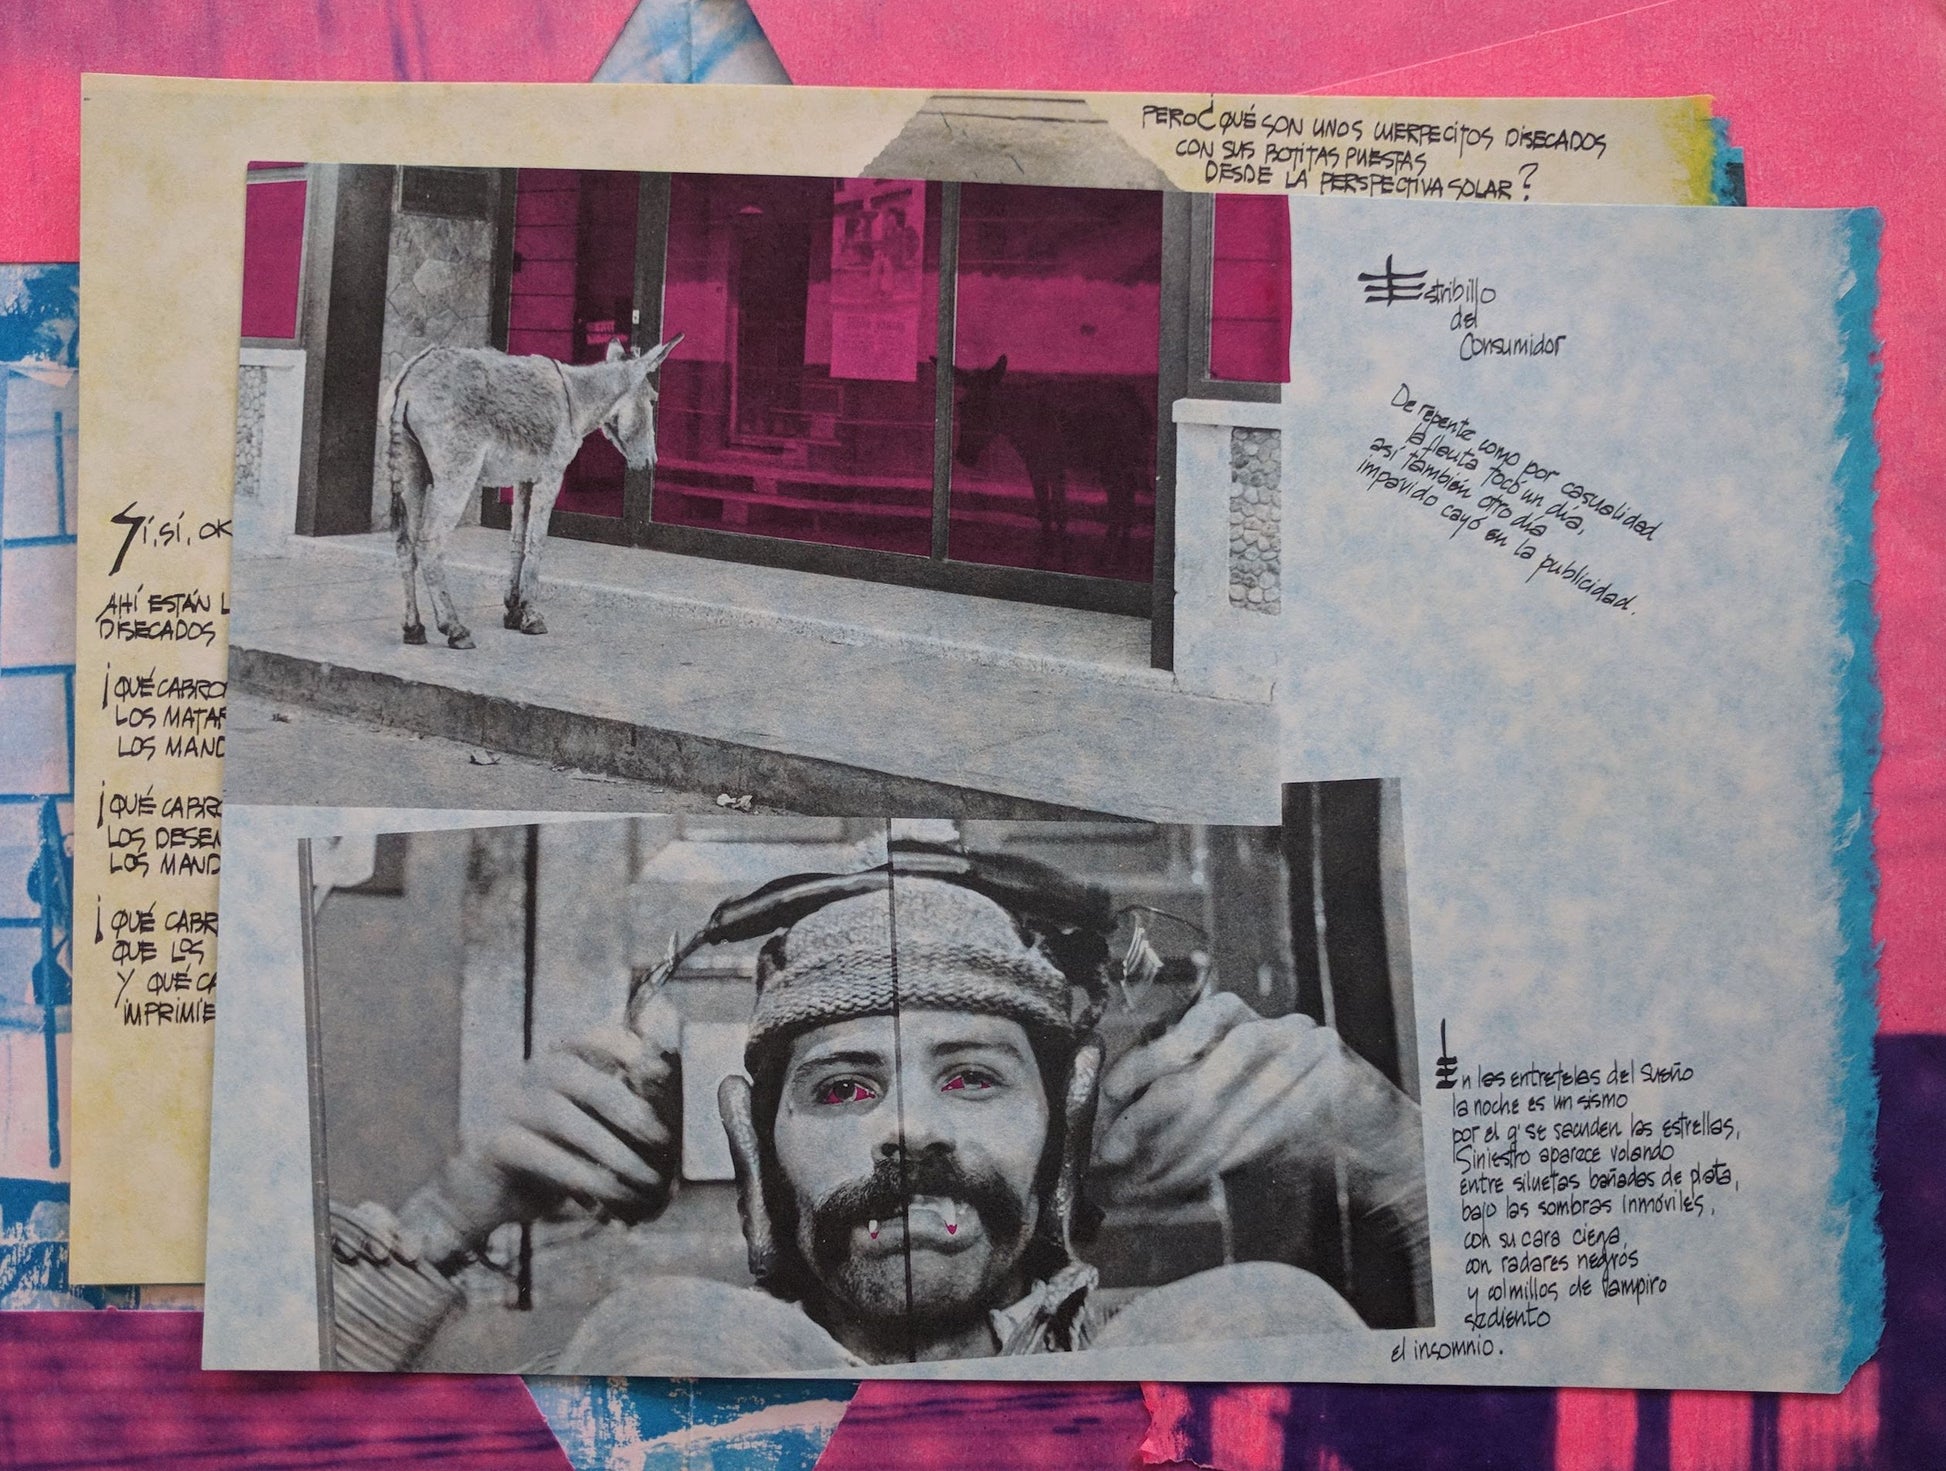 PERO ¿QUÉ SON UNOS CUERPECITOS DISECADOS
CON SUS BOTITAS PUESTAS
DESDE LA PERSPECTIVA SOLAR?
Estribillo
del
Consumidor
De repente como por casualidad
la flauta tocó un día,
así también otro día
impávido cayó en la publicidad.
SÍ, SÍ, OK
AHÍ ESTÁN L
DISECADOS
¡QUÉ CABRO
LOS MATAR
LOS MAND
¡QUÉ CABRO
LOS DESEN
LOS MAND
¡QUÉ CABR
QUE LOS
Y QUÉ CA
IMPRIMIE
En las entretelas del sueño
la noche es un sismo
por el q' se sacuden las estrellas,
Siniestro aparece volando
entre siluetas bañadas de plata,
bajo las sombras inmóviles,
con su cara ciega,
con radares negros
y colmillos de vampiro
sediento
el insomnio.